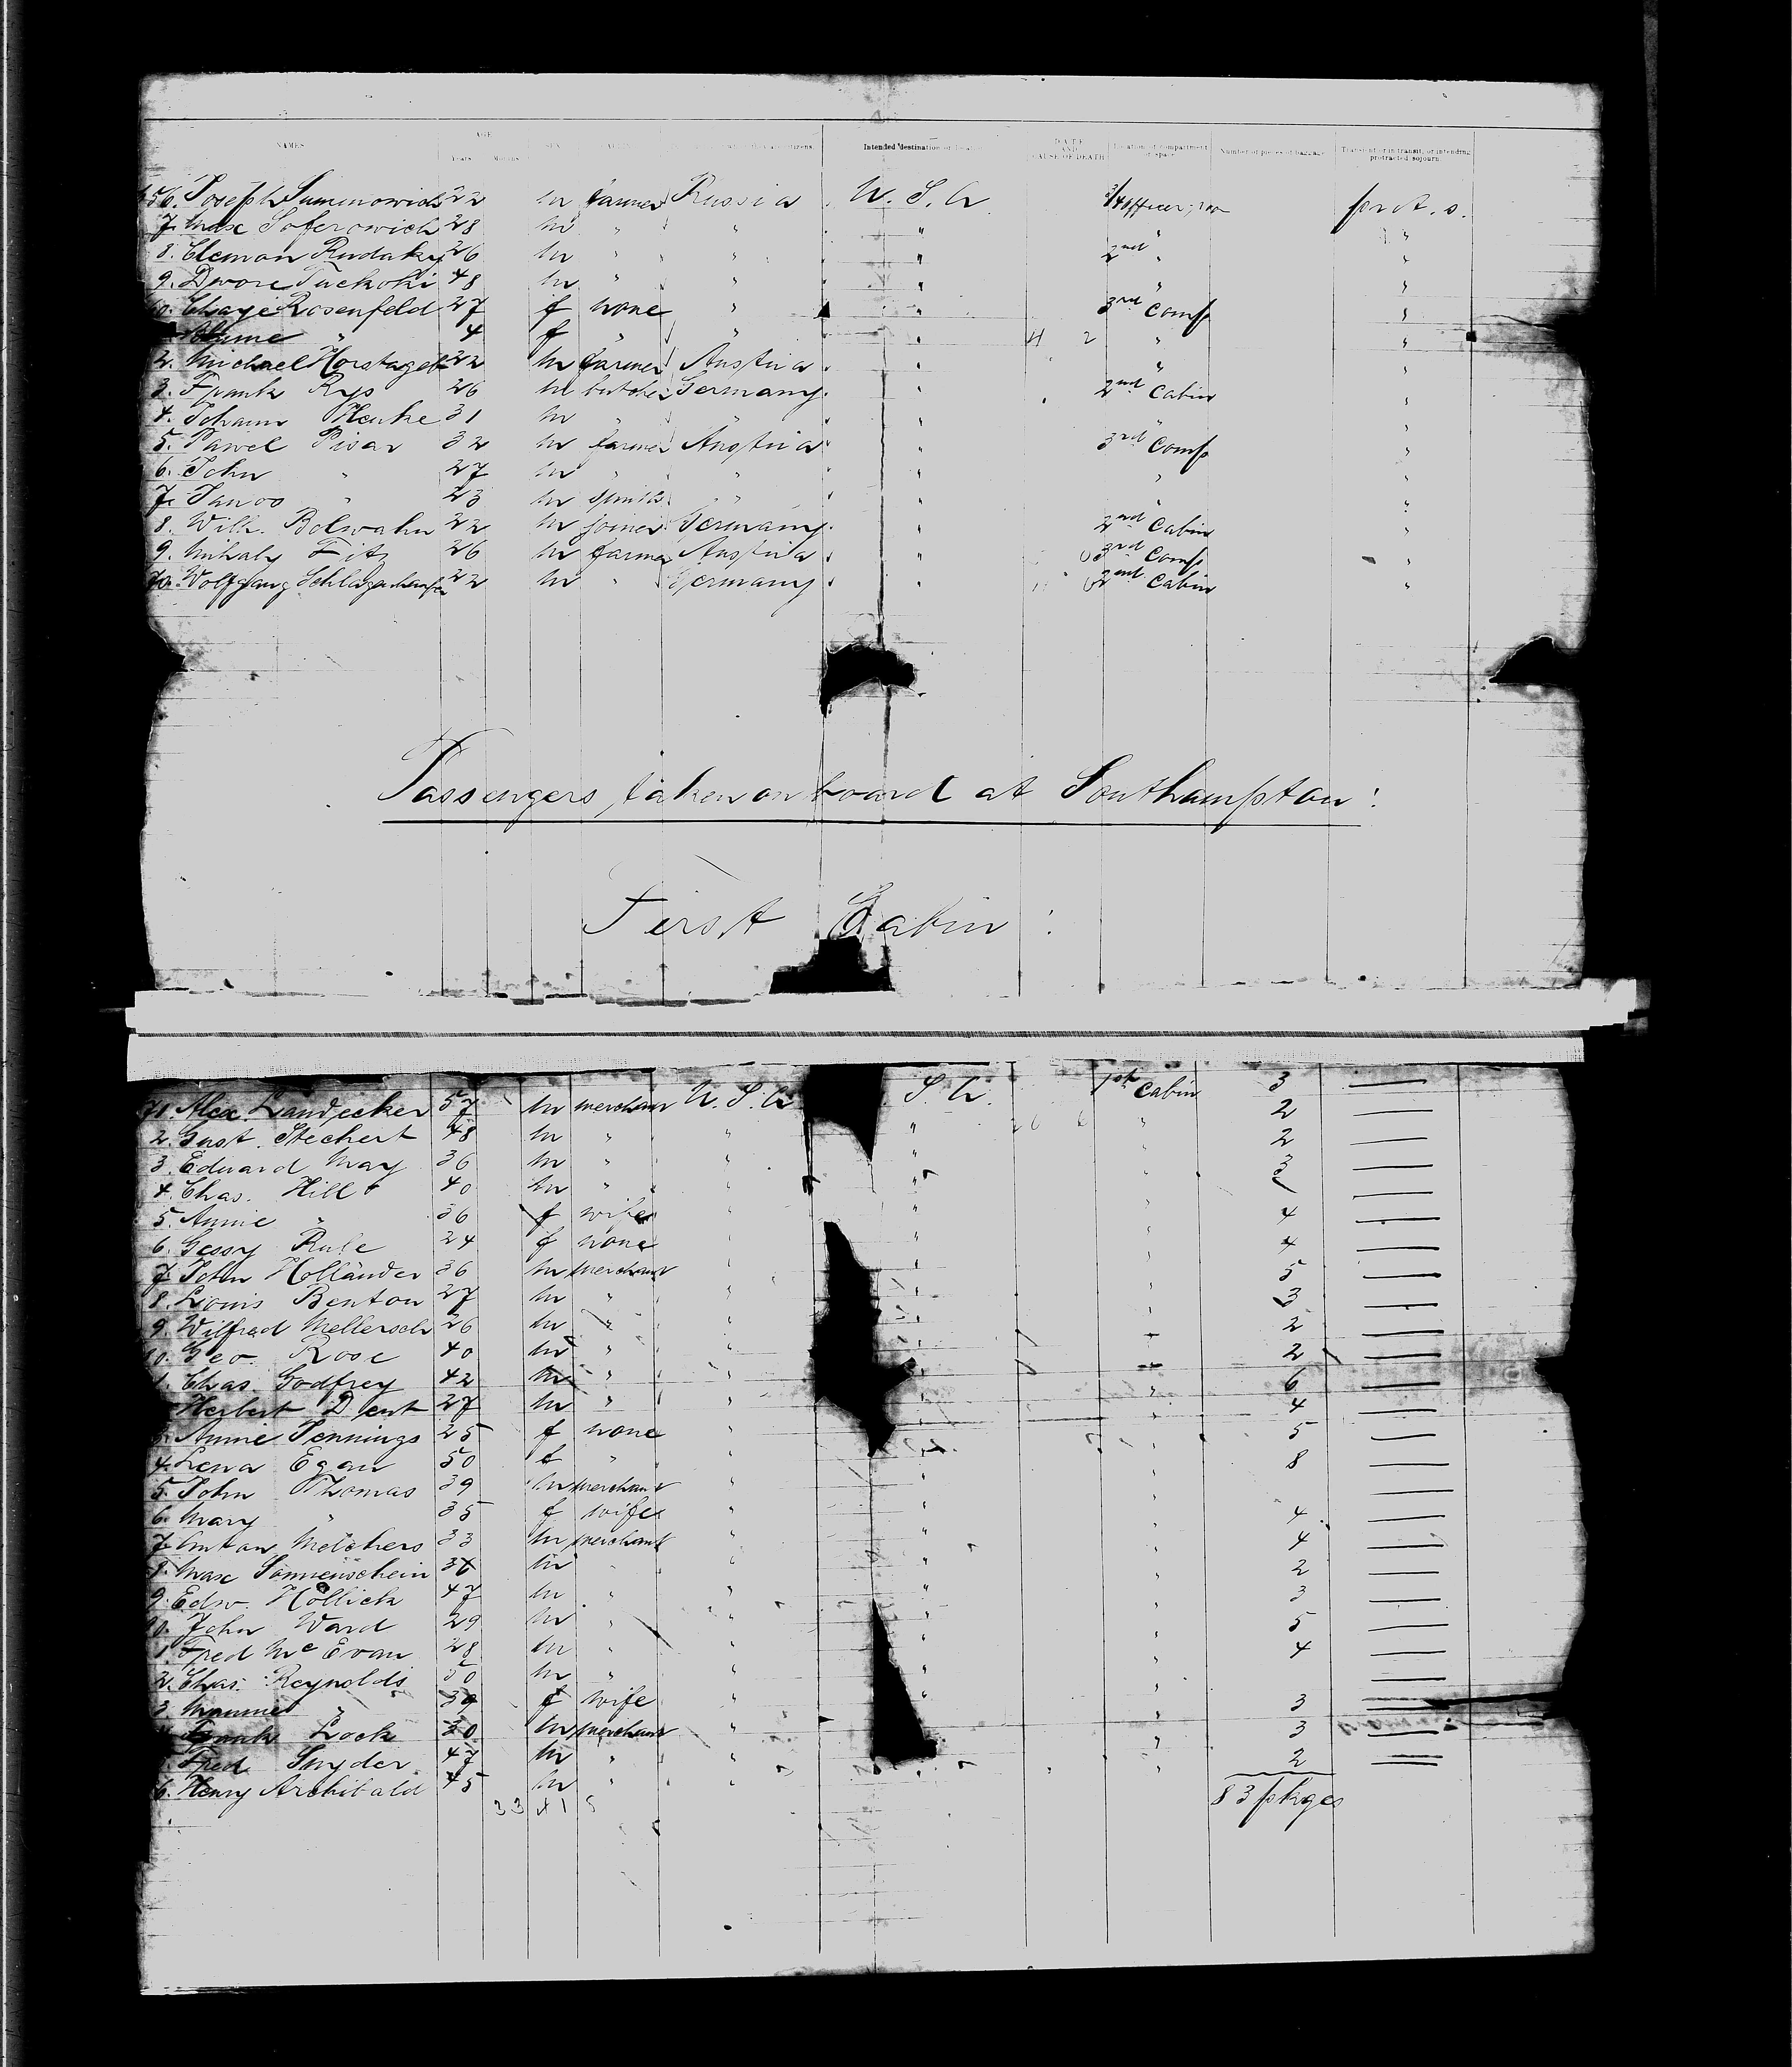 NAMES AGE Years Months SEX Intended destination or location DATE AND CAUSE OF DEATH Location of compartment or space Number of pieces of baggage Transient or in transit, or intending protracted sojourn.
56. Joseph 22 m farmer Russia U. S. A prot. s.
7. Max Soferowich 28 m " " " " "
8. Clemon Rudaky 26 m " " " 2nd " "
9. Dwore Tuckoki 48 m " " " " "
Chaye Rosenfeld 27 f none " " 3rd Comp "
" 4 f " " " "
2. Michael 22 m farmer Austria " " "
3. Frank Rys 26 m butcher Germany " 2nd Cabin "
4. Johann Henke 31 m " " " " "
5. Pawel Pisar 32 m farmer Austria " 3rd Comp "
6. John " 27 m " " " " "
7. Janos " 23 m smith " " " "
8. Wilh. Bolwahn 22 m joiner Germany " 2nd Cabin "
9. Mihaly Fitz 26 m farmer Austria " 3rd Comp "
70. Wolfgang Schlagenhaufer 22 m " Germany " 2nd Cabin "
Passengers, taken on board at Southampton!
First Cabin:
71. Alex. Landecker 57 m merchant U. S. A S. A. 1st Cabin 3 —
2. Gust. Stechert 48 m " " " " 2 —
3. Eduard May 36 m " " " " 2 —
4. Chas. Hill 40 m " " " " 3 —
5. Annie " 36 f wife " " " 4 —
6. Gessy Rule 24 f none " " " 4 —
7. John Holländer 36 m merchant " " " 5 —
8. Louis Benton 27 m " " " " 3 —
9. Wilfred Mellersch 26 m " " " " 2 —
80. Geo. Rose 40 m " " " " 2 —
1. Chas. Godfrey 42 m " " " " 6 —
Herbert Dent 27 m " " " " 4 —
3. Annie Jennings 25 f none " " " 5 —
4. Lena Egan 50 f " " " " 8 —
5. John Thomas 39 m merchant " " " —
6. Mary " 35 f wife " " " 4 —
7. Anton Melchers 33 m merchant " " " 4 —
8. Max Sonnenschein m " " " " 2 —
9. Edw. Hollick 47 m " " " " 3 —
90. John Ward 29 m " " " " 5 —
1. Fred Mc Evan 28 m " " " " 4 —
2. Chas. Reynolds m " " " " —
3. Mamme " 39 f wife " " " 3 —
Frank Lock 30 m merchant " " " 3 —
Fred Snyder 47 m " " " " 2 —
6. Henry Archibald 45 m " " " "
83 pkges